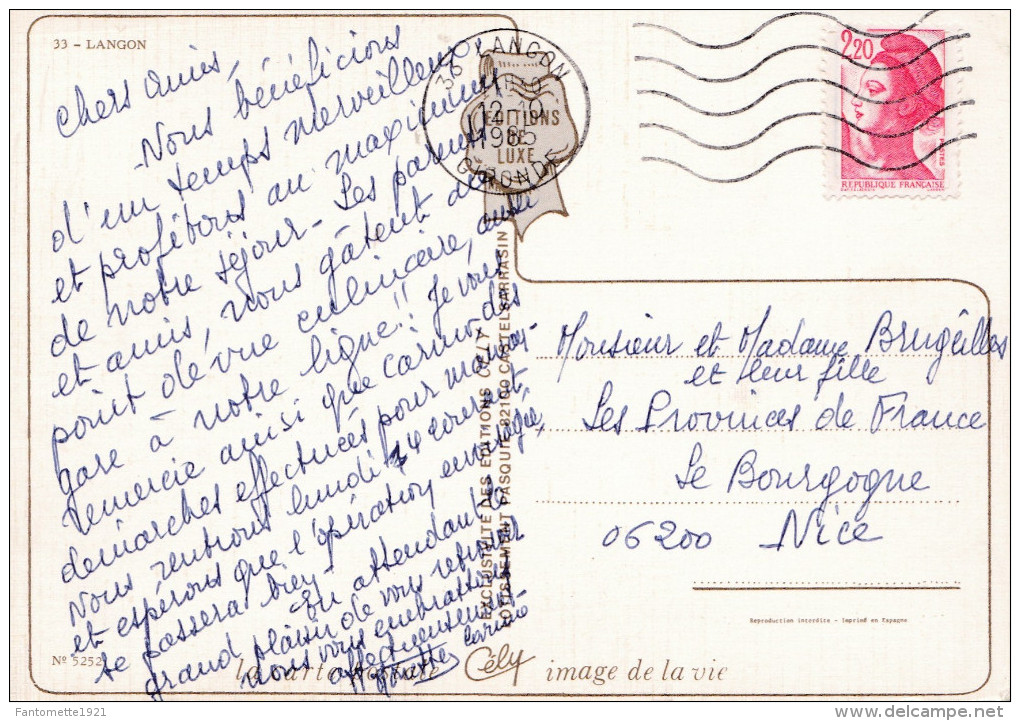 33 - LANGON
Chers amis,
Nous bénéficions
d'un temps merveilleux
et profitons au maximum
de notre séjour - Les parents
et amis, nous gâtent du
point de vue culinaire, aussi
gare à notre ligne!! Je vous
remercie ainsi que Carmo des
démarches effectuées pour
Nous rentrons lundi 14 courant,
et espérons que l'opération envisagée,
se passera bien -
En attendant le
grand plaisir de vous retrouver
nous vous embrassons
affectueusement
Nº 5252
la carte postale Cély image de la vie
36 LANGON
12-10
1985
GIRONDE
EDITIONS
DE
LUXE
2,20
REPUBLIQUE FRANÇAISE
POSTES
EXCLUSIVITE DES EDITIONS CELY
LOTISSEMENT PASQUIE 82100 CASTELSARRASIN
Monsieur et Madame Brugeilles
et leur fille
Les Provinces de France
Le Bourgogne
06200 Nice
Reproduction interdite - Imprimé en Espagne
Fantomette1921
delcampe.net